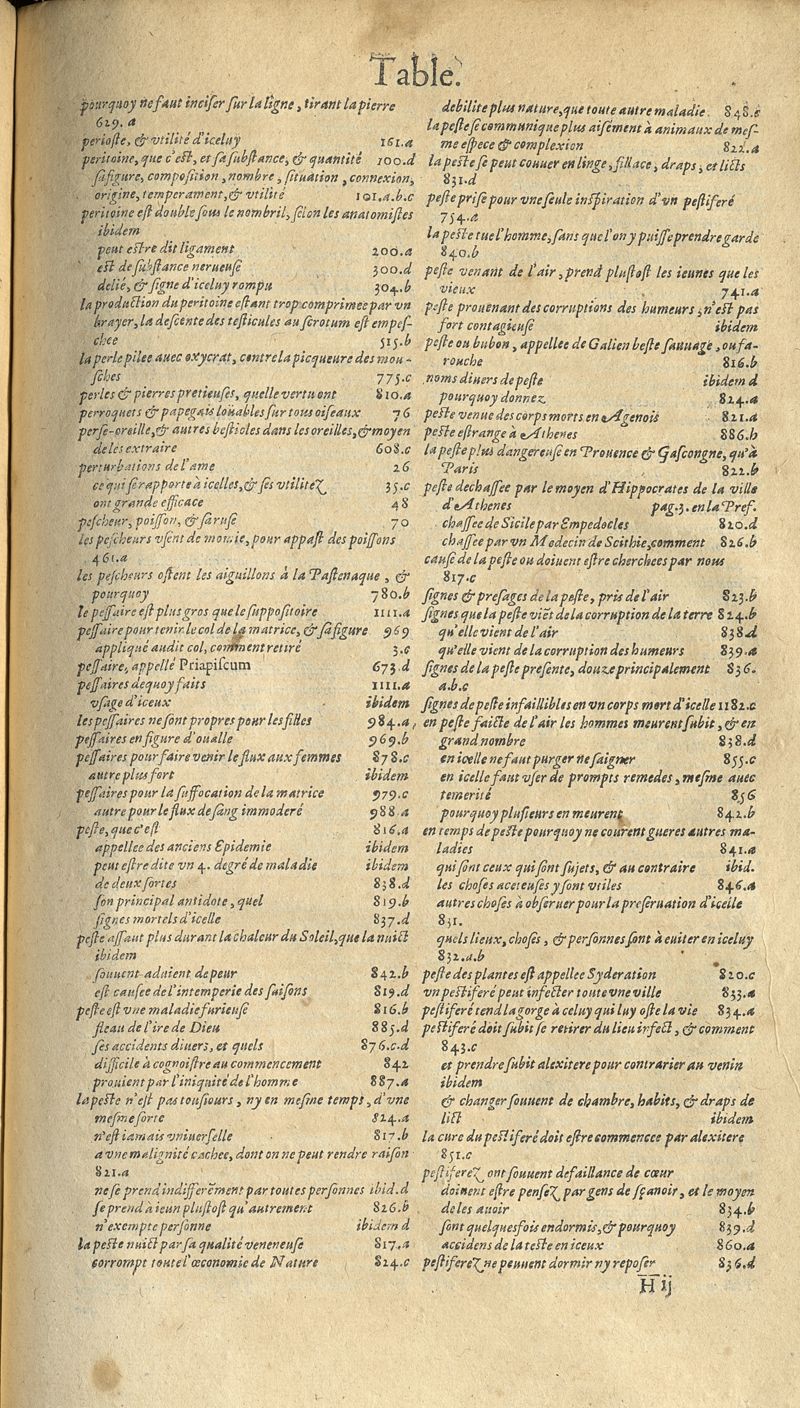 Table.
pourquoy ne faut inciser sur la ligne, tirant la pierre
629. a
perioste, & vtilité d'iceluy 161.a
peritoine, que c'est, et sa substance, & quantité 100.d
sa figure, composition, nombre, situation, connexion,
origine, temperament, & vtilité 101.a.b.c
peritoine est double sous le nombril, selon les anatomistes
ibidem
peut estre dit ligament 200.a
est de substance nerueuse 300.d
delié, & signe d'iceluy rompu 304.b
la production du peritoine estant trop comprimee par vn
brayer, la descente des testicules au scrotum est empes-
chee 515.b
la perle pilee auec oxycrat, contre la picqueure des mou-
sches 775.c
perles & pierres pretieuses, quelle vertu ont 810.a
perroquets & papegais louables sur tous oiseaux 76
perse-oreille, & autres bestioles dans les oreilles, & moyen
de les extraire 608.c
perturbations de l'ame 26
ce qui se rapporte à icelles, & ses vtilitez 35.c
ont grande efficace 48
pescheur, poisson, & sa ruse 70
les pescheurs vsent de momie, pour appast des poissons
461.a
les pescheurs ostent les aiguillons à la Pastenaque, &
pourquoy 780.b
le pessaire est plus gros que le suppositoire 1111.a
pessaire pour tenir le col de la matrice, & sa figure 969
appliqué audit col, comment retiré 3.c
pessaire, appellé Priapiscum 673.d
pessaires dequoy faits 1111.a
vsage d'iceux ibidem
les pessaires ne sont propres pour les filles 984.a
pessaires en figure d'oualle 969.b
pessaires pour faire venir le flux aux femmes 878.c
autre plus fort ibidem
pessaires pour la suffocation de la matrice 979.c
autre pour le flux de sang immoderé 988 a
peste, que c'est 816.a
appellee des anciens Epidemie ibidem
peut estre dite vn 4. degré de maladie ibidem
de deux sortes 838.d
son principal antidote, quel 819.b
signes mortels d'icelle 837.d
peste assaut plus durant la chaleur du Soleil, que la nuict
ibidem
souuent aduient de peur 842.b
est causee de l'intemperie des saisons 819.d
peste est vne maladie furieuse 816.b
fleau de l'ire de Dieu 885.d
ses accidents diuers, et quels 876.c.d
difficile à cognoistre au commencement 842
prouient par l'iniquité de l'homme 887.a
la peste n'est pas tousiours, ny en mesme temps, d'vne
mesme sorte 824.a
n'est iamais vniuerselle 817.b
a vne malignité cachee, dont on ne peut rendre raison
821.a
ne se prend indifferēment par toutes personnes ibid.d
se prend à ieun plustost qu'autrement 826.b
n'exempte personne ibidem d
la peste nuict par sa qualité veneneuse 817.a
corrompt toute l'œconomie de Nature 824.c
debilite plus nature, que toute autre maladie. 848.c
la peste se communique plus aisément à animaux de mes-
me espece & complexion 822.a
la peste se peut couuer en linge, fillace, draps, et licts
831.d
peste prise pour vne seule inspiration d'vn pestiferé
754.a
la peste tue l'homme, sans que l'on y puisse prendre garde
840.b
peste venant de l'air, prend plustost les ieunes que les
vieux 741.a
peste prouenant des corruptions des humeurs, n'est pas
fort contagieuse ibidem
peste ou bubon, appellee de Galien beste sauuage, ou fa-
rouche 816.b
noms diuers de peste ibidem d
pourquoy donnez 824.a
peste venue des corps morts en Agenois 821.a
peste estrange à Athenes 886.b
la peste plus dangereuse en Prouence & Gascongne, qu'à
Paris 822.b
peste dechassee par le moyen d'Hippocrates de la ville
d'Athenes pag.3. en la Pref.
chassee de Sicile par Empedocles 820.d
chassee par vn Medecin de Scithie, comment 826.b
cause de la peste ou doiuent estre cherchees par nous
817.c
signes & presages de la peste, pris de l'air 823.b
signes que la peste viēt de la corruption de la terre 824.b
qu'elle vient de l'air 838.d
qu'elle vient de la corruption des humeurs 839.a
signes de la peste presente, douze principalement 836.
a.b.c
signes de peste infaillibles en vn corps mort d'icelle 1182.c
en peste faicte de l'air les hommes meurent subit, & en
grand nombre 838.d
en icelle ne faut purger ne saigner 855.c
en icelle faut vser de prompts remedes, mesme auec
temerité 856
pourquoy plusieurs en meurent 842.b
en temps de peste pourquoy ne courent gueres autres ma-
ladies 841.a
qui sont ceux qui sont sujets, & au contraire ibid.
les choses aceteuses y sont vtiles 846.a
autres choses à obseruer pour la preseruation d'icelle
831.
quels lieux, choses, & personnes sont à euiter en iceluy
832.a.b
peste des plantes est appellee Syderation 820.c
vn pestiferé peut infecter toute vne ville 833.a
pestiferé tend la gorge à celuy qui luy oste la vie 834.a
pestiferé doit subit se retirer du lieu infect, & comment
843.c
et prendre subit alexitere pour contrarier au venin
ibidem
& changer souuent de chambre, habits, & draps de
lict ibidem
la cure du pestiferé doit estre commencee par alexitere
851.c
pestiferez ont souuent defaillance de cœur
doiuent estre pensez par gens de sçauoir, et le moyen
de les auoir 834.b
sont quelquesfois endormis, & pourquoy 839.d
accidens de la teste en iceux 860.a
pestiferez ne peuuent dormir ny reposer 836.d
H ij